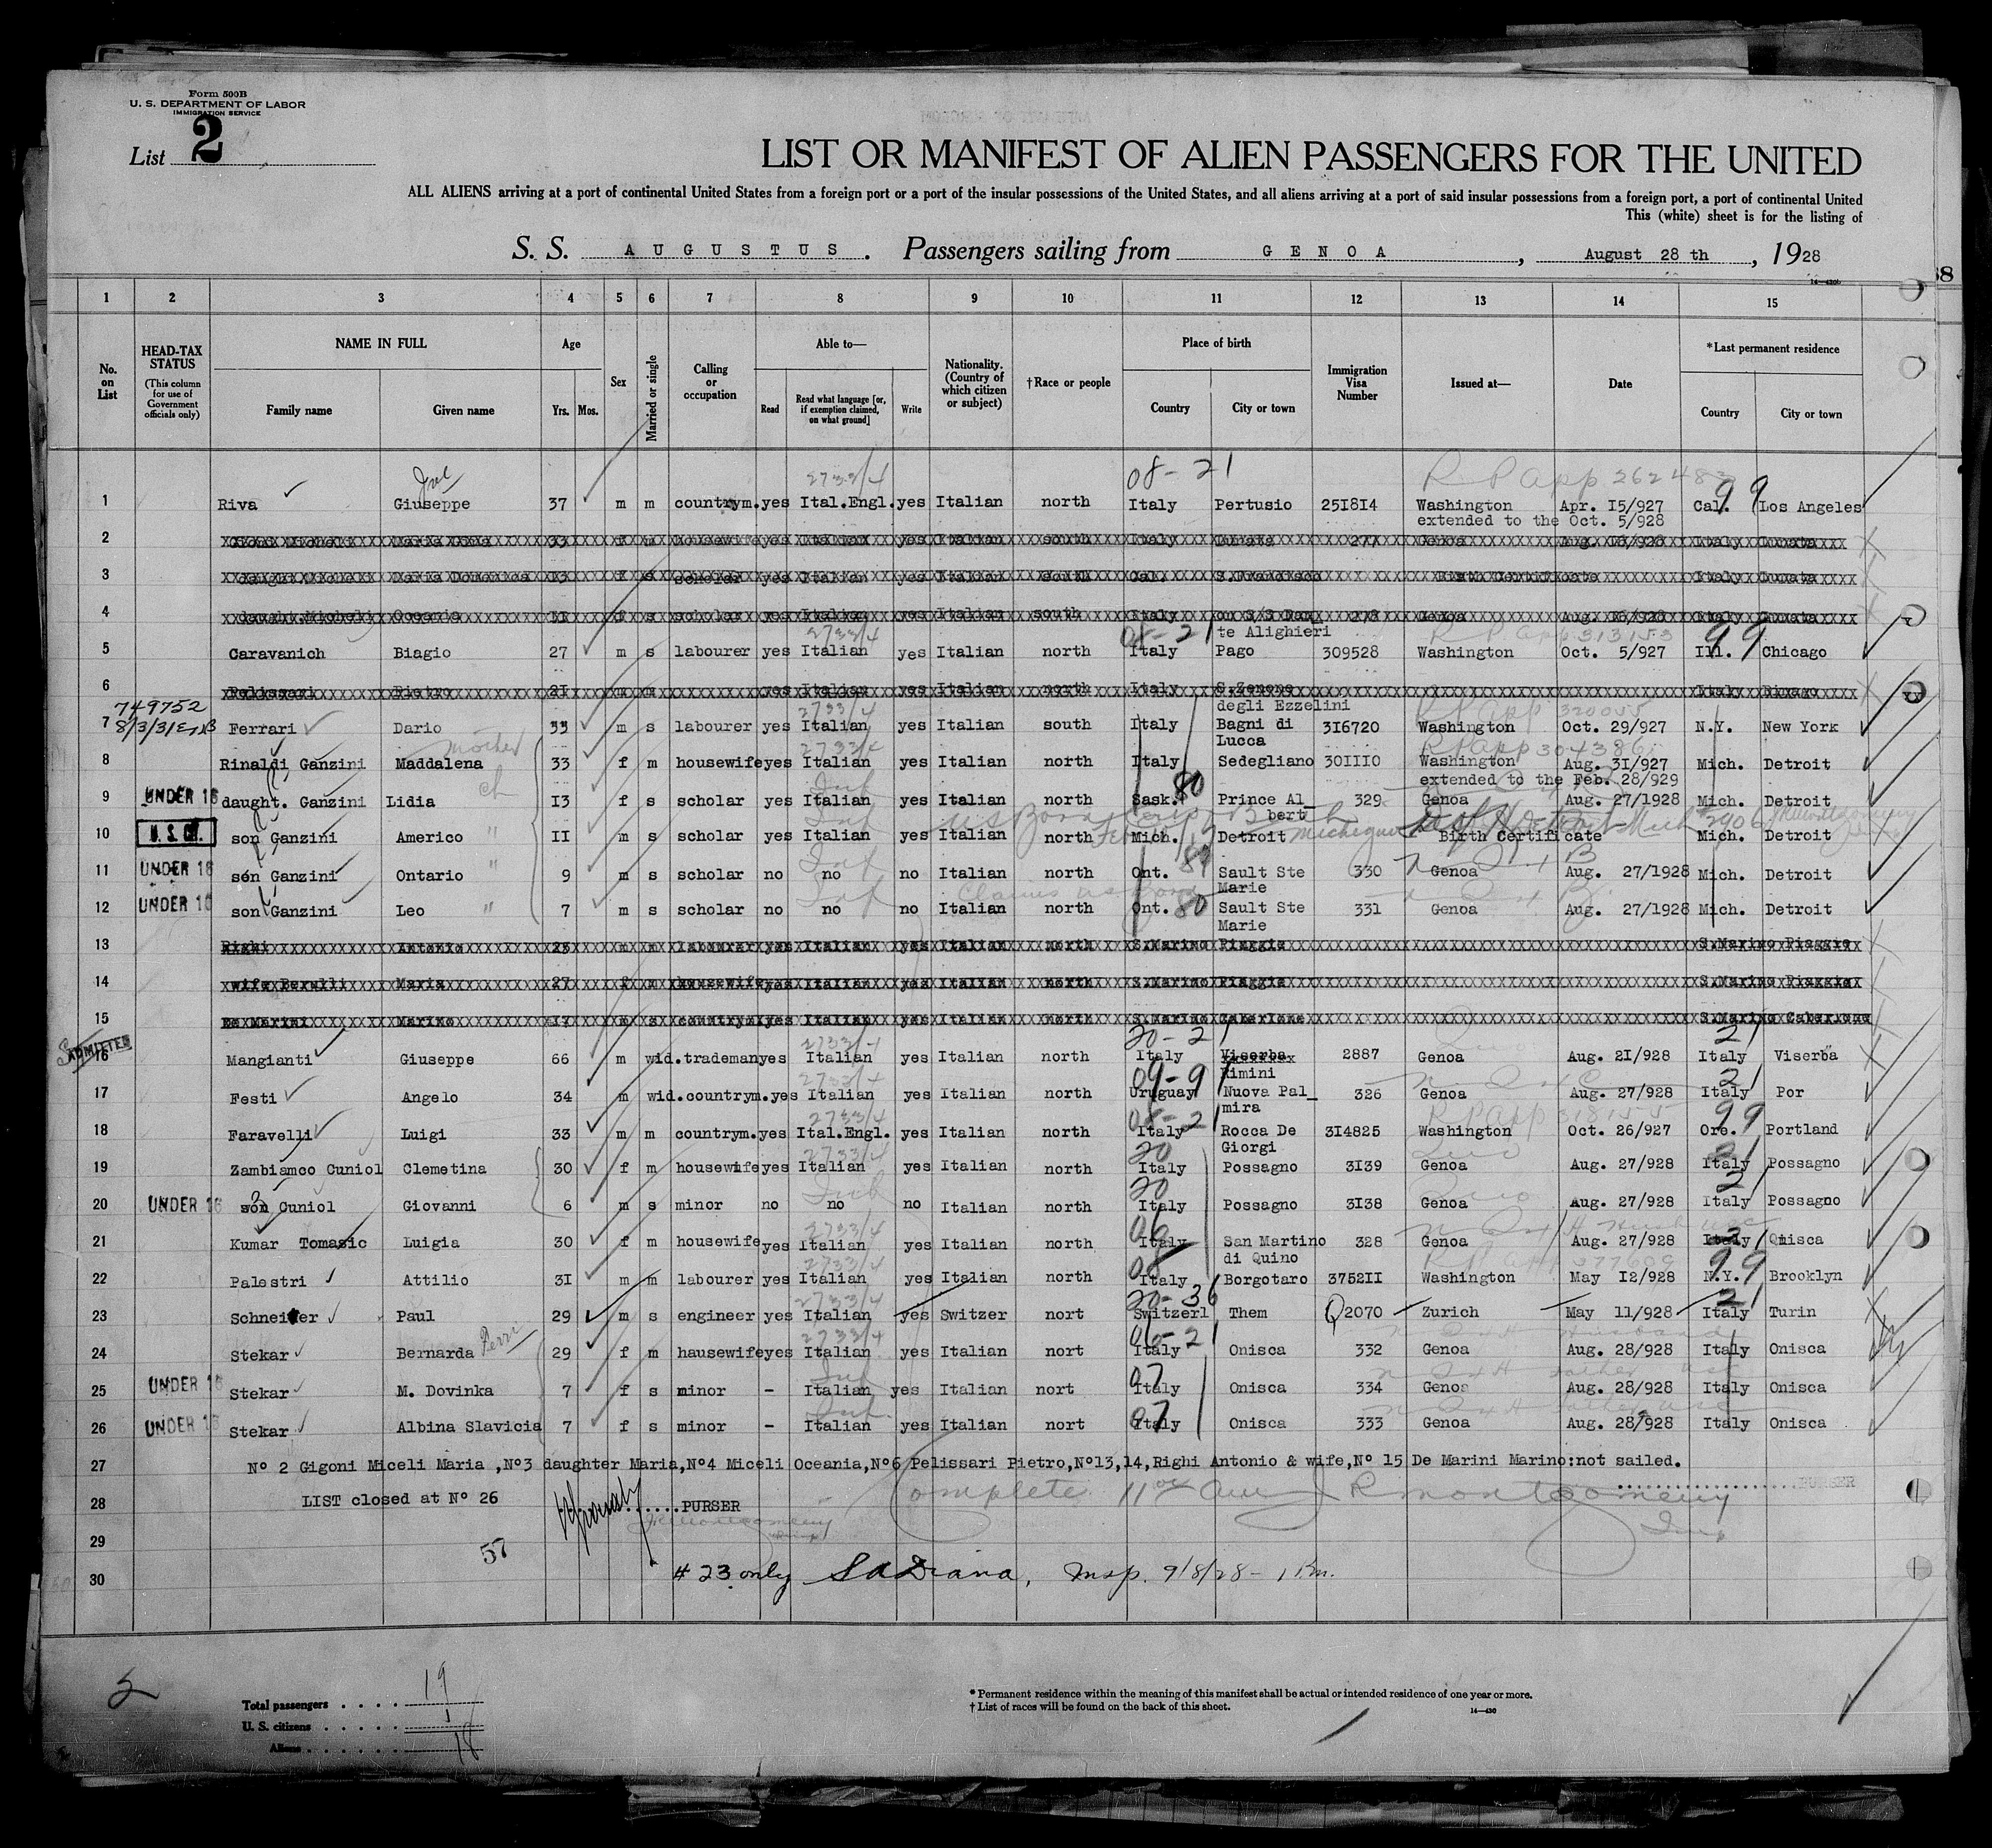 Form 500B
U. S. DEPARTMENT OF LABOR
IMMIGRATION SERVICE
List 2
LIST OR MANIFEST OF ALIEN PASSENGERS FOR THE UNITED
ALL ALIENS arriving at a port of continental United States from a foreign port or a port of the insular possessions of the United States, and all aliens arriving at a port of said insular possessions from a foreign port, a port of continental United
This (white) sheet is for the listing of
S. S. AUGUSTUS. Passengers sailing from GENOA, August 28 th, 1928
1 2 3 4 5 6 7 8 9 10 11 12 13 14 15
No. on List
HEAD-TAX STATUS (This column for use of Government officials only)
NAME IN FULL
Family name Given name
Age
Yrs. Mos.
Sex
Married or single
Calling or occupation
Able to—
Read
Read what language [or, if exemption claimed, on what ground]
Write
Nationality. (Country of which citizen or subject)
†Race or people
Place of birth
Country City or town
Immigration Visa Number
Issued at—
Date
*Last permanent residence
Country City or town
2733/4 08-21 R P App 262483 99
1 Riva Giuseppe 37 m m countrym. yes Ital.Engl. yes Italian north Italy Pertusio 251814 Washington Apr. 15/927 Cal. Los Angeles
extended to the Oct. 5/928
2 33 f m housewife yes Italian yes Italian south Italy Lunata 277 Genoa Aug. 16/928 Italy Lunata
3 Maria Domenica 13 f s scholar yes Italian yes Italian south Cal. S.Francisco Birth Certificate Italy Lunata
4 daught.Micheli Oceania 11 f s scholar yes Italian yes Italian south Italy on S/S Dan_ 278 Genoa Aug. 16/928 Italy Lunata
te Alighieri
2733/4 08-21 R P App 313153 99
5 Caravanich Biagio 27 m s labourer yes Italian yes Italian north Italy Pago 309528 Washington Oct. 5/927 Ill. Chicago
6 Pelissari Pietro 21 m m yes Italian yes Italian north Italy S.Zenone Italy
degli Ezzelini
749752
8/3/31
2733/4 R P App 320055
7 Ferrari Dario 33 m s labourer yes Italian yes Italian south Italy Bagni di 316720 Washington Oct. 29/927 N.Y. New York
Lucca
mother 2733/4 R P App 304386
8 Rinaldi Ganzini Maddalena 33 f m housewife yes Italian yes Italian north Italy Sedegliano 301110 Washington Aug. 31/927 Mich. Detroit
extended to the Feb. 28/929
ch 80
9 UNDER 16 daught. Ganzini Lidia 13 f s scholar yes Italian yes Italian north Sask. Prince Al_ 329 Genoa Aug. 27/1928 Mich. Detroit
bert
10 U. S. CIT. son Ganzini Americo " 11 m s scholar yes Italian yes Italian north Mich. Detroit Birth Certificate Mich. Detroit
11 UNDER 16 son Ganzini Ontario " 9 m s scholar no no no Italian north Ont. Sault Ste 330 Genoa Aug. 27/1928 Mich. Detroit
Marie
Claims US Born 80
12 UNDER 16 son Ganzini Leo " 7 m s scholar no no no Italian north Ont. Sault Ste 331 Genoa Aug. 27/1928 Mich. Detroit
Marie
13 Righi Antonio 25 m m labourer yes Italian yes Italian north S.Marino Piaggie S.Marino Piaggie
14 wife Perulli Maria 27 f m housewife yes Italian yes Italian north S.Marino Piaggie S.Marino Piaggie
15 De Marini Marino 17 m s countrym. yes Italian yes Italian north S.Marino S.Marino
ADMITTED
2733/4 20-21 21
16 Mangianti Giuseppe 66 m wid. trademan yes Italian yes Italian north Italy Viserba 2887 Genoa Aug. 21/928 Italy Viserba
Rimini
2733/4 09-9 21
17 Festi Angelo 34 m wid. countrym. yes Italian yes Italian north Uruguay Nuova Pal_ 326 Genoa Aug. 27/928 Italy Por
mira
2733/4 08-21 R P App 318155 99
18 Faravelli Luigi 33 m m countrym. yes Ital.Engl. yes Italian north Italy Rocca De 314825 Washington Oct. 26/927 Ore. Portland
Giorgi
2733/4 20 21
19 Zambianco Cuniol Clemetina 30 f m housewife yes Italian yes Italian north Italy Possagno 3139 Genoa Aug. 27/928 Italy Possagno
20 21
20 UNDER 16 son Cuniol Giovanni 6 m s minor no no no Italian north Italy Possagno 3138 Genoa Aug. 27/928 Italy Possagno
2733/4 06
21 Kumar Tomasic Luigia 30 f m housewife yes Italian yes Italian north Italy San Martino 328 Genoa Aug. 27/928 Italy Qnisca
di Quino
2733/4 08 99
22 Palestri Attilio 31 m m labourer yes Italian yes Italian north Italy Borgotaro 375211 Washington May 12/928 N.Y. Brooklyn
2733/4 20-36 21
23 Schneiter Paul 29 m s engineer yes Italian yes Switzer nort Switzerl Them Q2070 Zurich May 11/928 Italy Turin
2733/4 06-21
24 Stekar Bernarda 29 f m hausewife yes Italian yes Italian nort Italy Onisca 332 Genoa Aug. 28/928 Italy Onisca
07
25 UNDER 16 Stekar M. Dovinka 7 f s minor - Italian yes Italian nort Italy Onisca 334 Genos Aug. 28/928 Italy Onisca
07
26 UNDER 16 Stekar Albina Slavicia 7 f s minor - Italian yes Italian nort Italy Onisca 333 Genoa Aug. 28/928 Italy Onisca
27 Nº 2 Gigoni Miceli Maria ,Nº3 daughter Maria,Nº4 Miceli Oceania,Nº6 Pelissari Pietro,Nº13,14,Righi Antonio & wife,Nº 15 De Marini Marino:not sailed.
28 LIST closed at Nº 26 .....PURSER Complete 11 JR Montgomery PURSER
29 57
30 # 23 only Insp. 9/8/28 - 1 P.m.
Total passengers . . . . 19
U. S. citizens . . . . . 1
Aliens . . . . . . 18
* Permanent residence within the meaning of this manifest shall be actual or intended residence of one year or more.
† List of races will be found on the back of this sheet.
14—430